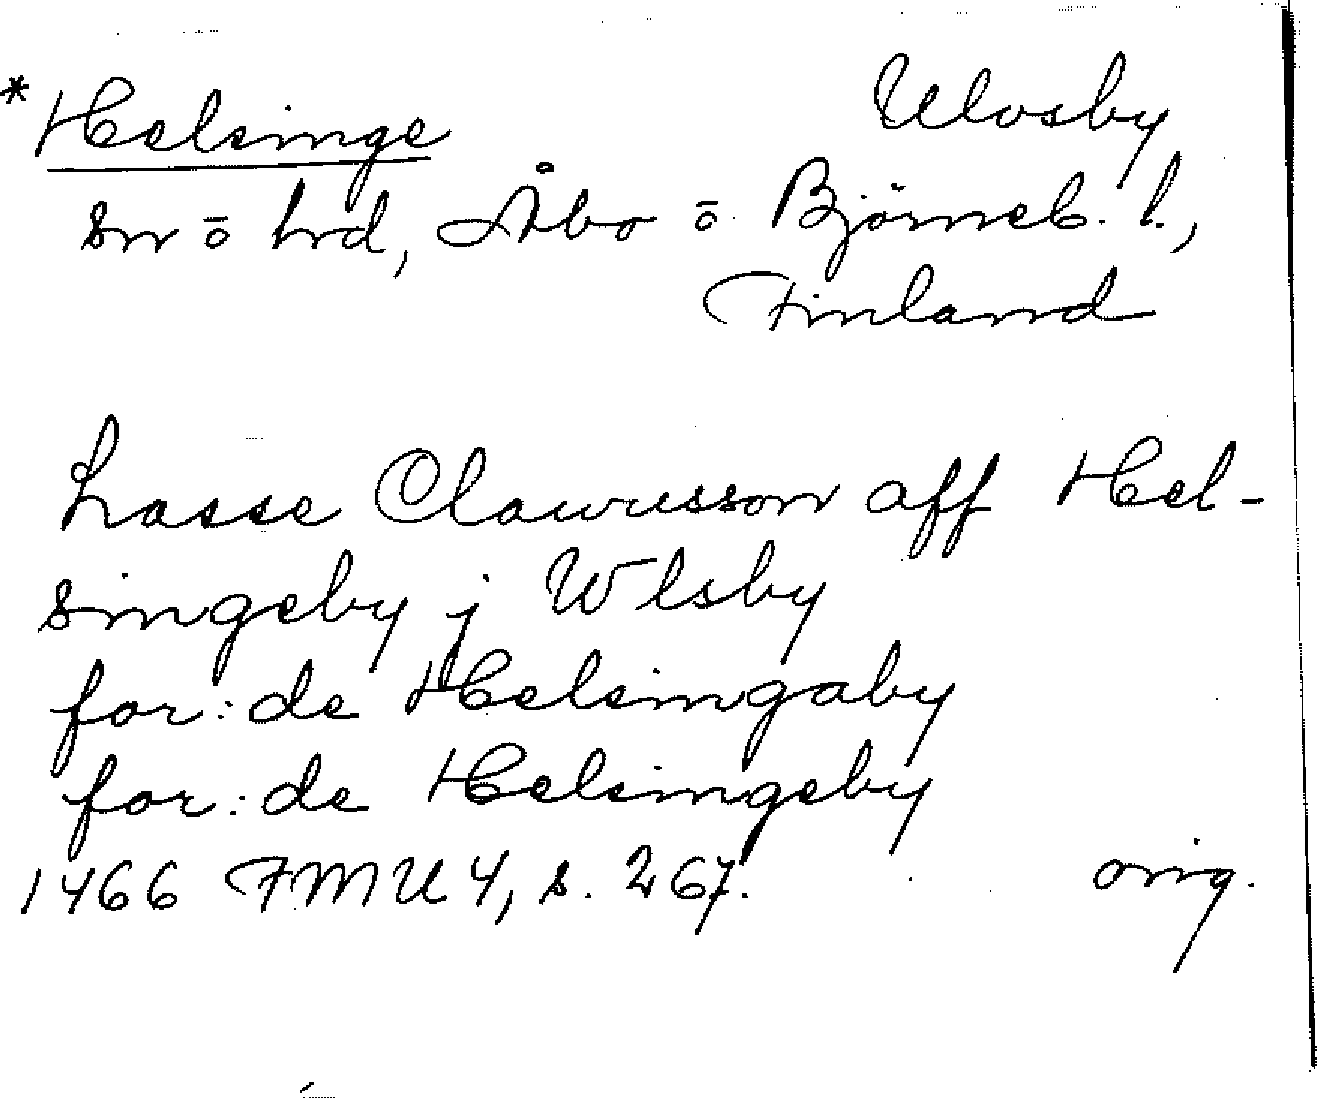 *Helsinge Ulvsby
sn ō hrd, Åbo ō Björneb. l.,
Finland
Lasse Clawusson aff Hel-
singeby j Wlsby
for: de Helsingaby
for: de Helsingeby
1466 FMU 4, s. 267. orig.